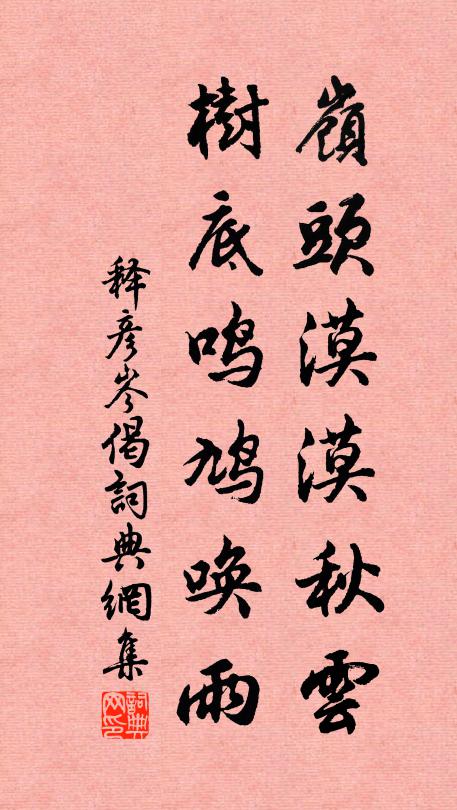 嶺頭漠漠秋雲
樹底鳴鳩喚雨
释彦岑偈詞典網集
詞典网印